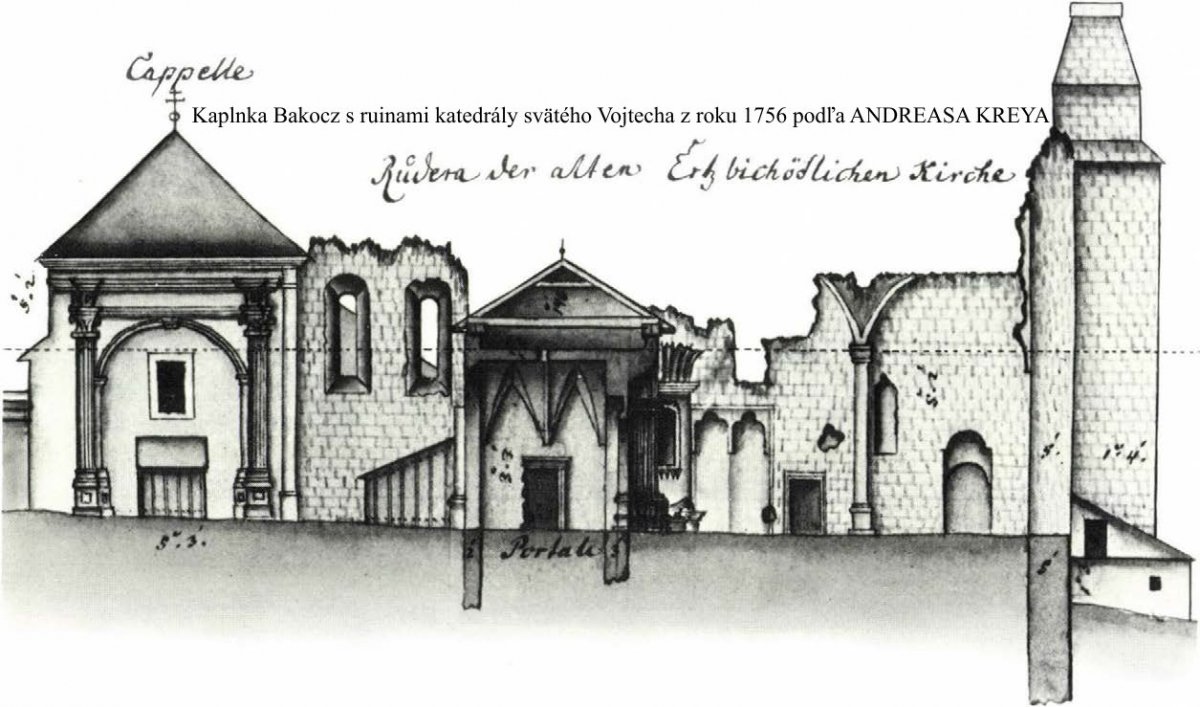 Cappelle
Kaplnka Bakocz s ruinami katedrály svätého Vojtecha z roku 1756 podľa ANDREASA KREYA
Růdera der alten Ertzbichöslichen Kirche
5°. 3'.
Portale
5'.
1°. 4'.
5'